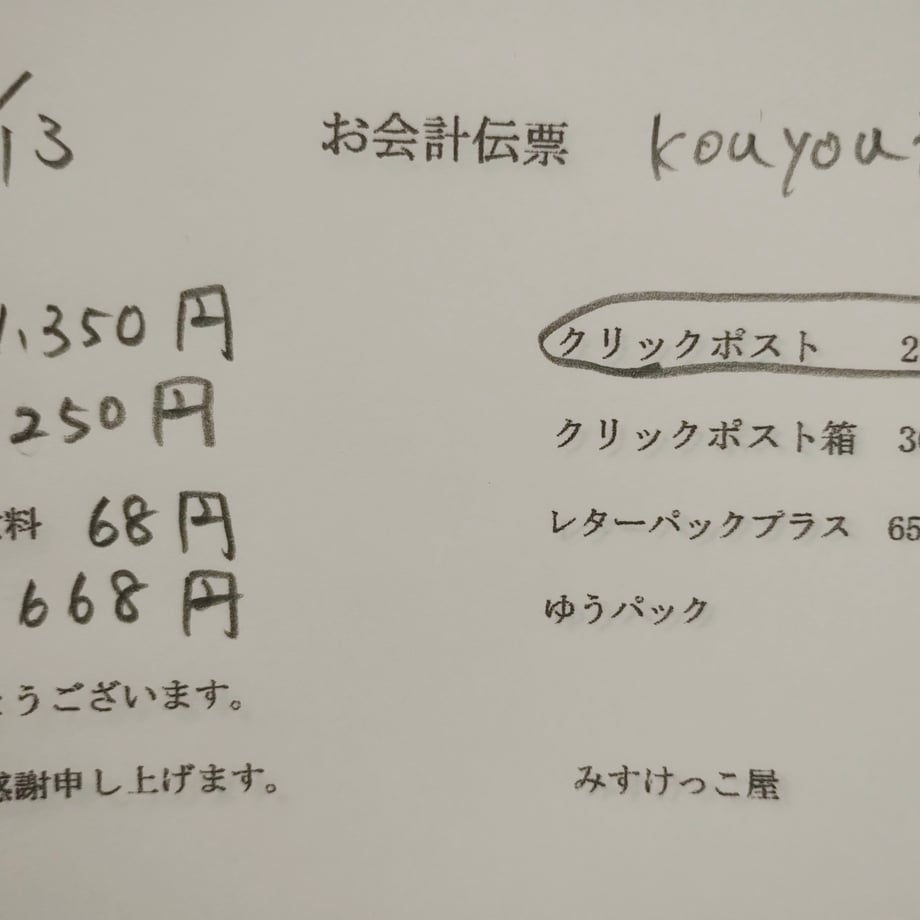 /13 お会計伝票 kouyou
1,350円 クリックポスト 2
250円 クリックポスト箱 30
料 68円 レターパックプラス 65
668円 ゆうパック
うございます。
感謝申し上げます。 みすけっこ屋